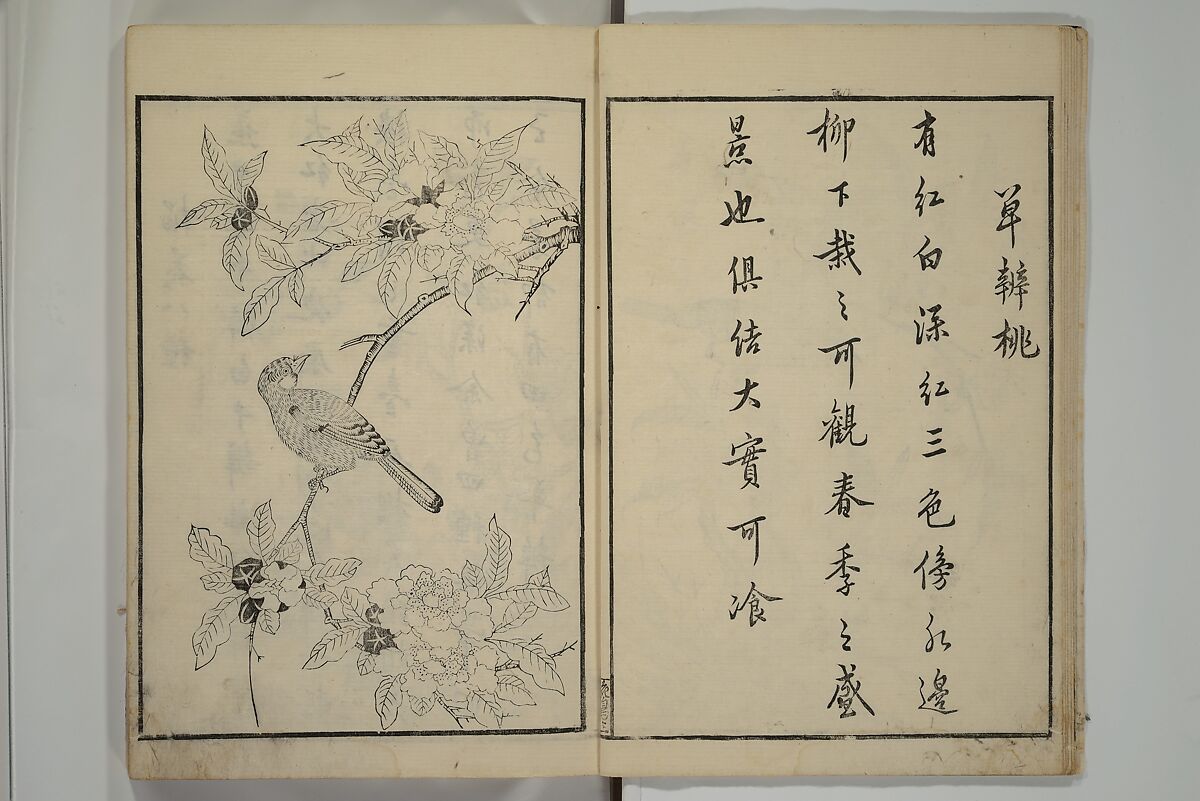 單辦桃
有紅白深紅三色傍水邊
柳下栽之可觀春季之盛
景也俱结大實可飡